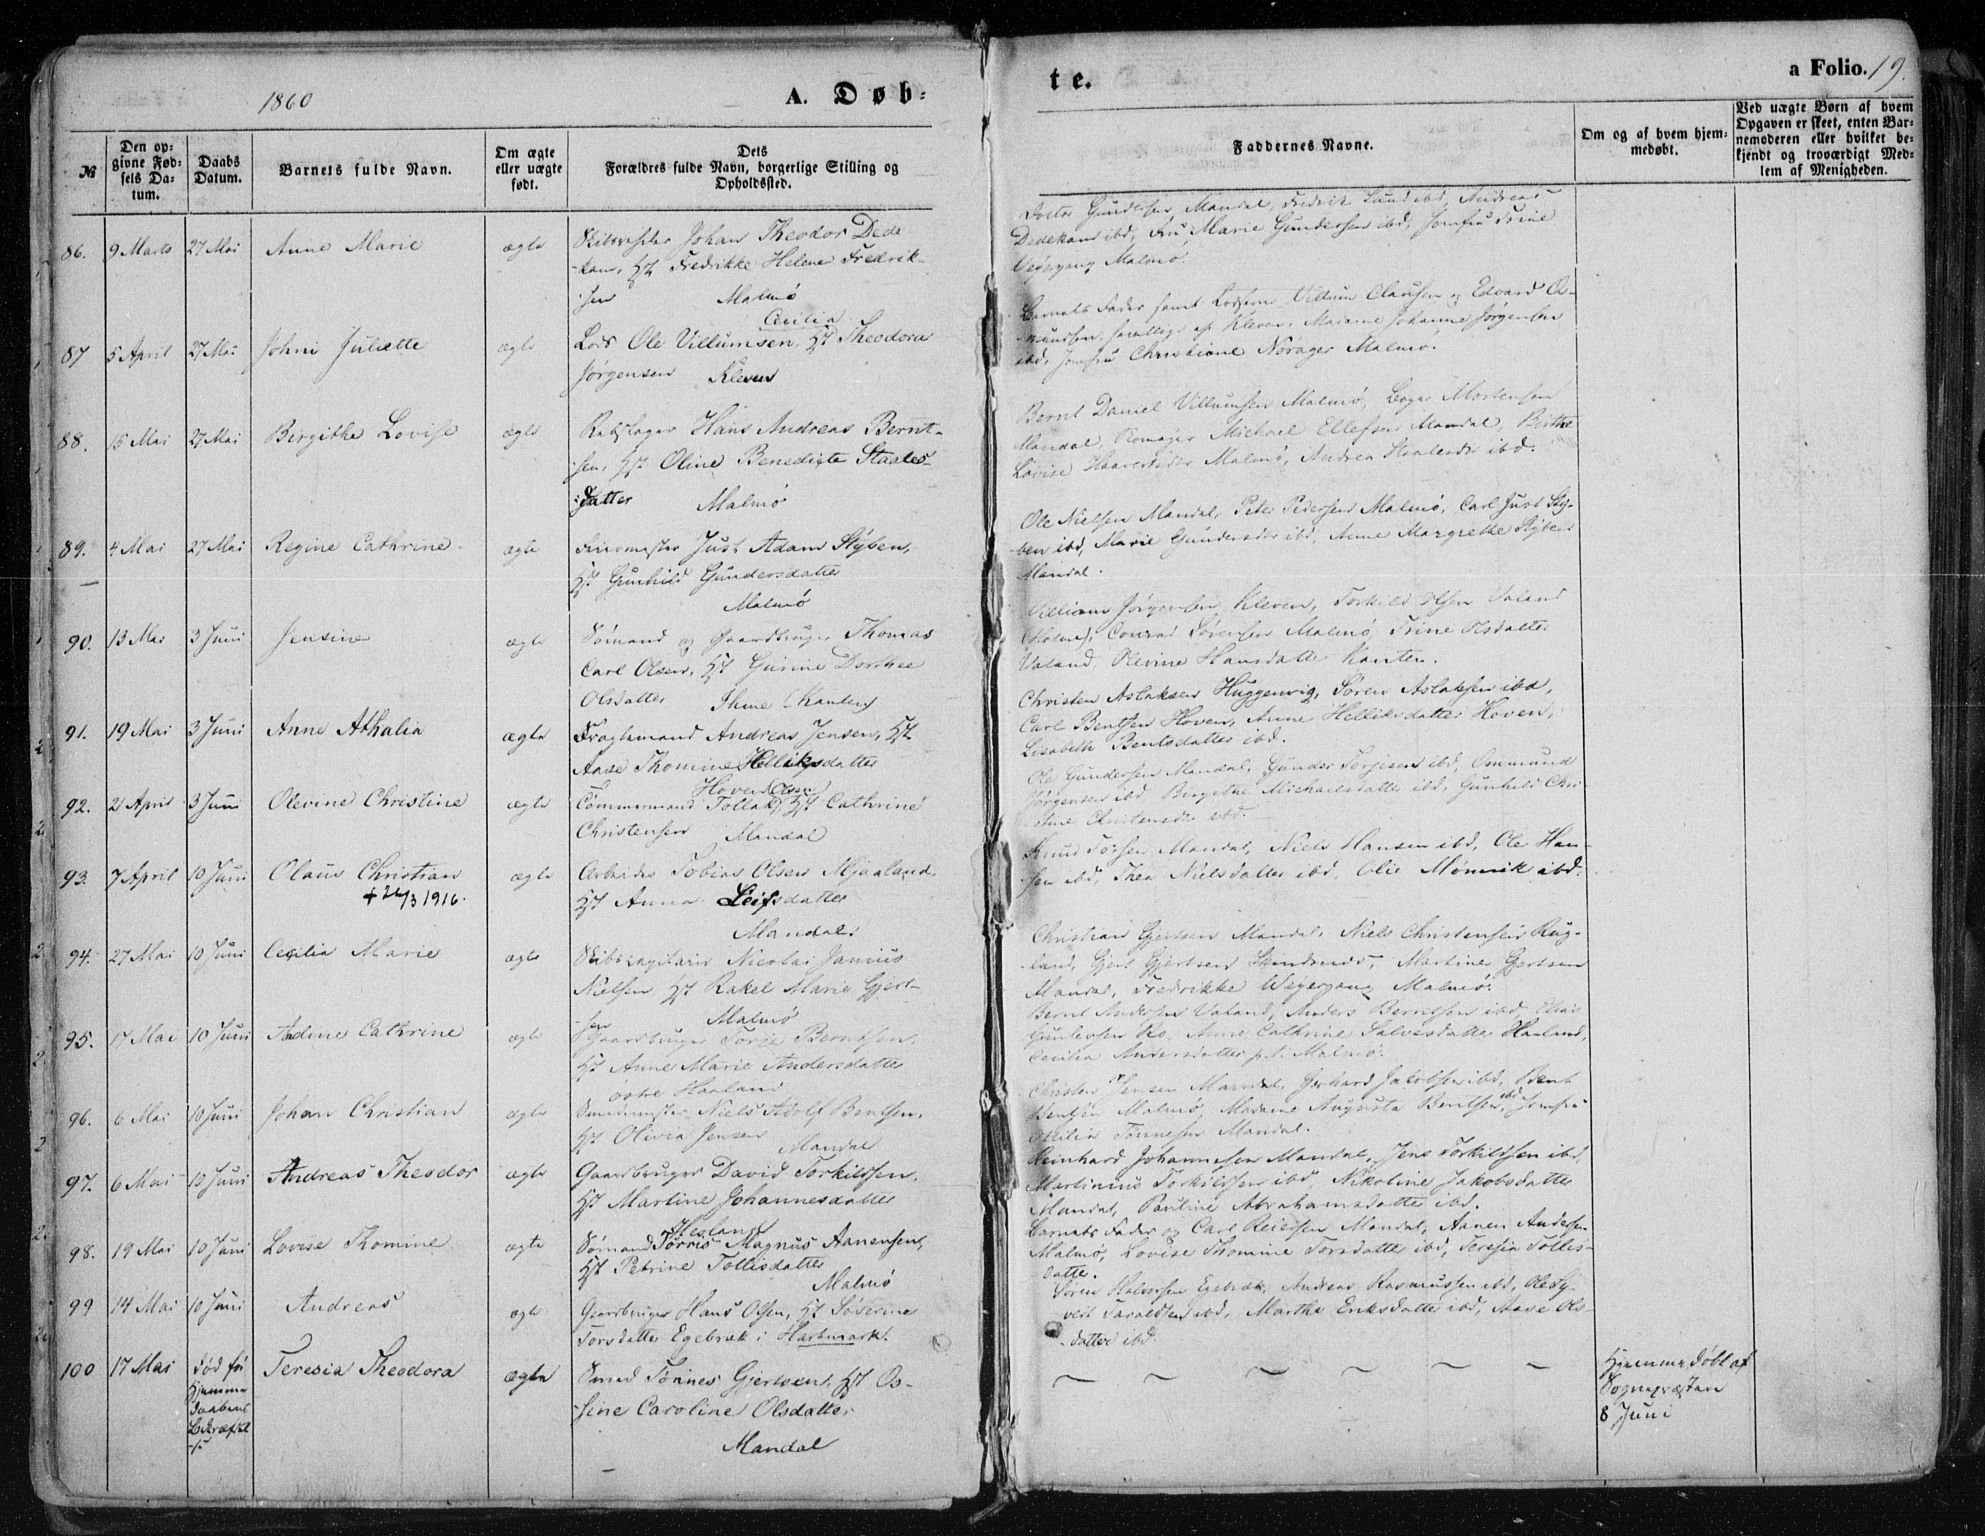 1860
A. Døb=
te.
a Folio. 19.
№
Den opgivne Fødsels Datum.
Daabs Datum.
Barnets fulde Navn.
Om ægte eller uægte født.
Dets Forældres fulde Navn, borgerlige Stilling og Opholdssted.
Faddernes Navne.
Om og af hvem hjemmedøbt.
Ved uægte Børn af hvem Opgaven er skeet, enten Barnemoderen eller hvilket bekjendt og troværdigt Medlem af Menigheden.
86. 9 Marts 27 Mai Anne Marie ægte Johan Theodor Dede
-kam, Hst Fredrikke Helene Fredrik-
sen Malmø
Gundersen, Mandal, Fredrik Lund ibd, Andreas
Dedekam ibd, Fru Marie Gundersen ibd, Jomfru Trine
Weiergang Malmø.
87 5 April 27 Mai Johni Juliette ægte Lods Ole Villumsen, Hst Cecilia Theodora
Jørgensen Kleven
Barnets Fader samt Villum Clausen og Edvard
af Kleven, Madame Johanne Jørgensen
ibd, Jomfru Christiane Norager Malmø.
88. 15 Mai 27 Mai Birgithe Lovise ægte Hans Andreas Bernt-
sen, Hst Oline Benedigte Staales-
datter Malmø
Bernt Daniel Villumsen Malmø, Mortensen
Mandal, Michael Ellefsen Mandal, Birthe
Lovise Malmø, Andrea ibd.
89. 4 Mai 27 Mai Regine Cathrine ægte Just Adam Styben,
Hst Gunhild Gundersdatter
Malmø
Ole Nielsen Mandal, Peter Pedersen Malmø, Carl Just Sty-
ben ibd, Marie Gundersdtr ibd, Anne Margrethe Styben
Mandal.
90. 13 Mai 3 Juni Jensine ægte Sømand og Gaardbruger Thomas
Carl Olsen, Hst Gurine Dorthee
Olsdatter Ihme (Kanten)
Villiam Jørgensen Kleven, Torkild Olsen Valand
(Holme), Conrad Sørensen Malmø, Trine Olsdatter
Valand, Olevine Hansdatter Kanten.
91. 19 Mai 3 Juni Anne Athalia ægte Fragtemand Andreas Jensen, Hst
Aase Thomine Helliksdatter
Hoven
Christen Aslaksen Huggenvig, Søren Aslaksen ibd,
Carl Bentsen Hoven, Anne Helliksdatter Hoven,
Lisabeth Bentsdatter ibd.
92. 21 April 3 Juni Olevine Christine ægte Tømmermand Tollak Olsen, Hst Cathrine
Christensen Mandal
Ole Gundersen Mandal, Gunder Torjesen ibd, Ommund
Jørgensen ibd, Birgithe Michaelsdatter ibd, Gunhild Chri-
stine Christensdtr ibd.
93. 7 April 10 Juni Olaus Christian ægte Arbeider Tobias Olsen Mjaaland,
+ 26/3 1916.
Hst Anna Leifsdatter
Mandal.
Knud Mandal, Niels Hansen ibd, Ole Han-
sen ibd, Thea Nielsdatter ibd, Olie Mønnik ibd.
94. 27 Mai 10 Juni Cecilia Marie ægte Nicolai Janius
Nielsen, Hst Rakel Marie Gjert-
sen Malmø
Christian Gjertsen Mandal, Niels Christensen Rug-
land, Gjert Gjertsen Martine Gjertsen
Mandal, Fredrikke Weyergang Malmø.
95. 17 Mai 10 Juni Adine Cathrine ægte Gaardbruger Torge Berntsen,
Hst Anne Marie Andersdatter
østre Haaland
Bernt Andersen Valand, Anders Berntsen ibd, Elias
Gunlevsen Ro, Anne Cathrine Salvesdatter Haaland,
Cecilia Andersdatter p.t. Malmø.
96. 6 Mai 10 Juni Johan Christian ægte Niels Adolf Bentsen,
Hst Olivia Jensen
Mandal
Christen Jensen Mandal, Gerhard Jacobsen ibd, Bent
Bentsen Malmø, Madame Augusta Bentsen ibd, Jomfru
Cecilia Tønnesen Mandal.
97. 6 Mai 10 Juni Andreas Theodor ægte Gaardbruger David Torkildsen,
Hst Martine Johannesdatter
Hesland
Reinhard Johannesen Mandal, Jens Torkildsen ibd,
Martinius Torkildsen ibd, Nikoline Jakobsdatter
Mandal, Pauline Abrahamsdatter ibd.
98. 19 Mai 10 Juni Lovise Thomine ægte Sømand Torris Magnus Aanensen,
Hst Petrine Tollisdatter
Malmø
Barnets Fader og Carl Reiersen Mandal, Aanen Andersen
Malmø, Lovise Thomine Torsdatter ibd, Teresia Tollis-
datter.
99 14 Mai 10 Juni Andreas ægte Gaardbruger Hans Olsen, Hst Søverine
Torsdatter Egebræk i Hartmark.
Søren Halvorsen Egebræk, Andreas Rasmussen ibd, Ole Sy-
vert Taraldsen ibd, Marthe Eriksdatter ibd, Aase Ols-
datter ibd.
100 17 Mai Død før
Hjemme
daabens
Bekræftel
se
Teresia Theodora ægte Smed Tønnes Gjertsen, Hst Os-
sine Caroline Olsdatter
Mandal
Hjemmedøbt af
Sognepræsten
8 Juni